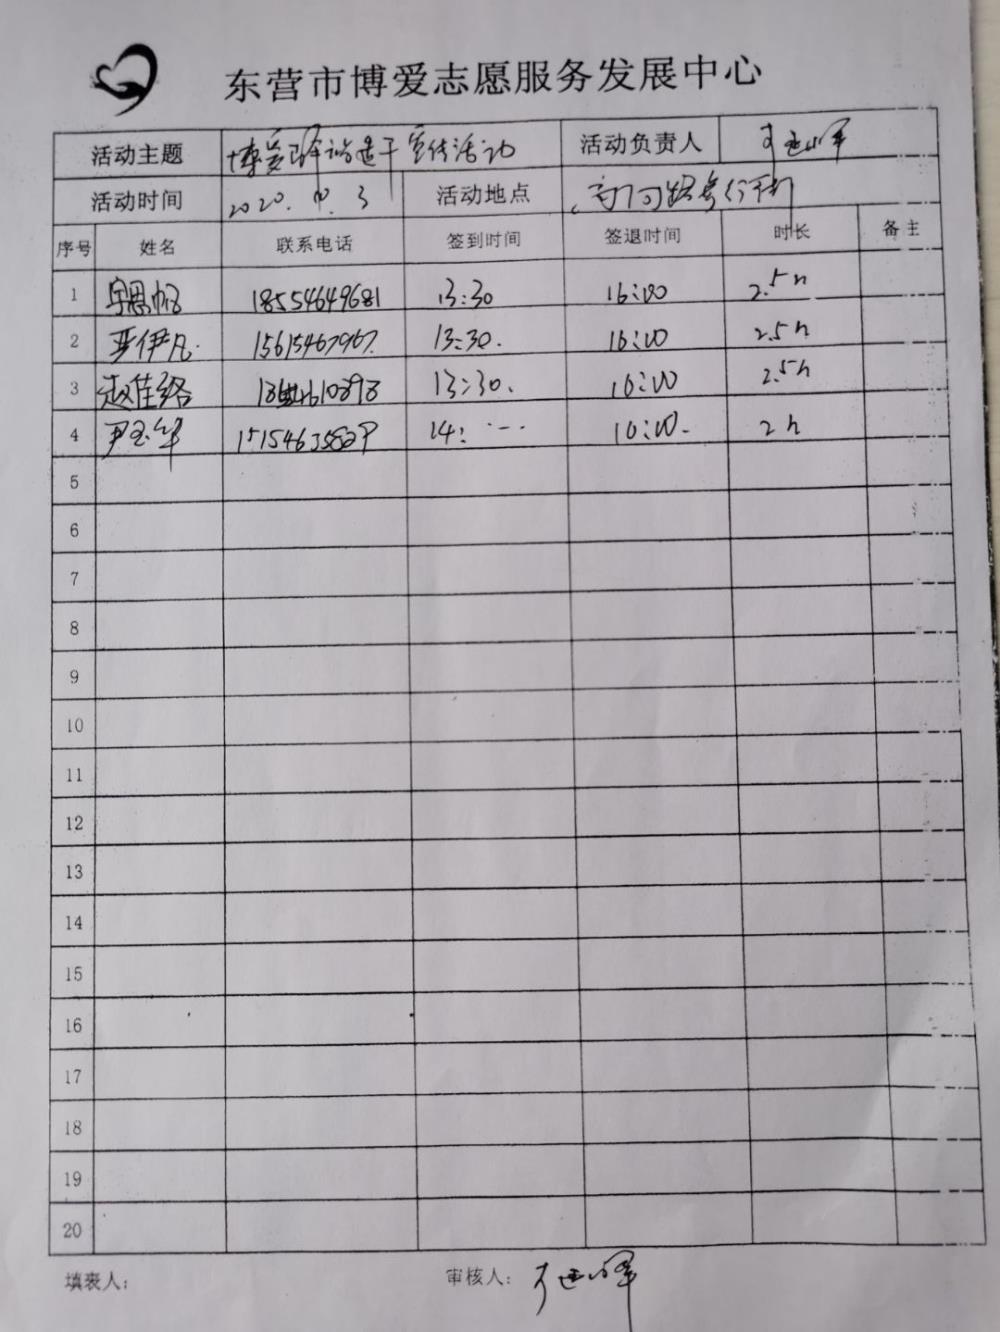 东营市博爱志愿服务发展中心
活动主题 宣传活动 活动负责人
活动时间 2020. 3 活动地点 步行街
序号 姓名 联系电话 签到时间 签退时间 时长 备主
1 18554649681 13:30 16:00 2.5h
2 伊凡 15615467967 13:30. 16:00 2.5h
3 赵佳 13:30. 16:00 2.5h
4 尹玉华 14: 16:00. 2h
5
6
7
8
9
10
11
12
13
14
15
16
17
18
19
20
填表人： 审核人：